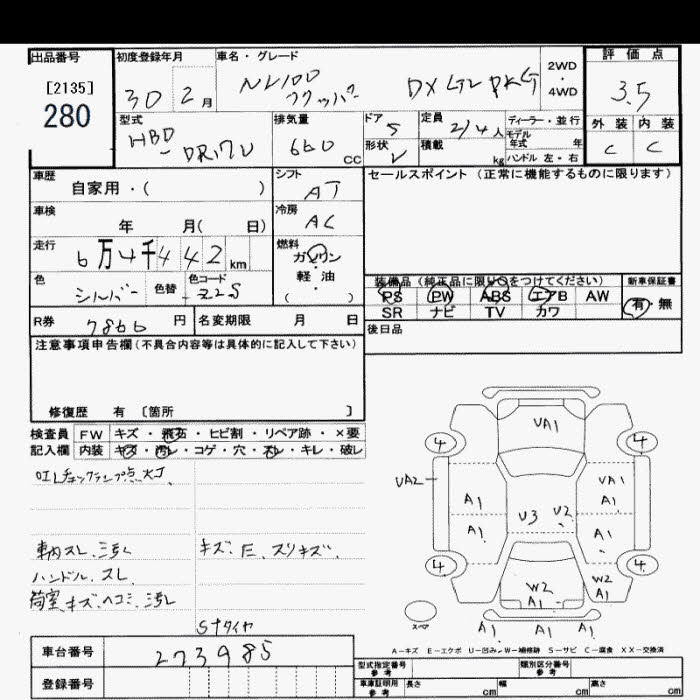 出品番号 初度登録年月 車名・グレード 2WD・4WD 評価点
[2135] 280 30 2月 NV100 クリッパー DX GL PKG 3.5
型式 HBD-DR17V 排気量 660cc ドア 5 定員 2/4人 ディーラー・並行 外装 内装
形状 V 積載 kg モデル年式 年 ハンドル 左・右 C C
車歴 自家用・( ) シフト AT セールスポイント (正常に機能するものに限ります)
車検 年 月( 日) 冷房 AC
走行 6万4千442km 燃料 ガソリン・軽油 ( )
色 シルバー 色替 色コード Z2S
装備品 (純正品に限り○をつけてください) 新車保証書
PS PW ABS エアB AW 有・無
SR ナビ TV カワ
R券 7866円 名変期限 月 日 後日品
注意事項申告欄(不具合内容等は具体的に記入して下さい)
修復歴 有 [箇所 ]
検査員 FW キズ・飛石・ヒビ割・リペア跡・×要
記入欄 内装 キズ・汚レ・コゲ・穴・スレ・キレ・破レ
OILチェックランプ点灯
車内スレ、汚レ キズ、E、スリキズ、
ハンドル、スレ
荷室、キズ、ヘコミ、汚レ
Sナタイヤ
UA1
4 4
UA2 A1 UA1 A1
A1 U3 U2 A1
4 4
W2 A1 W2 A1
スペア A1 A1 A1
A-キズ E-エクボ U-凹み W-補修跡 S-サビ C-腐食 XX-交換済
車台番号 273985
登録番号
型式指定番号 参考 類別区分番号 参考
車庫証明用 参考 長さ cm 幅 cm 高さ cm